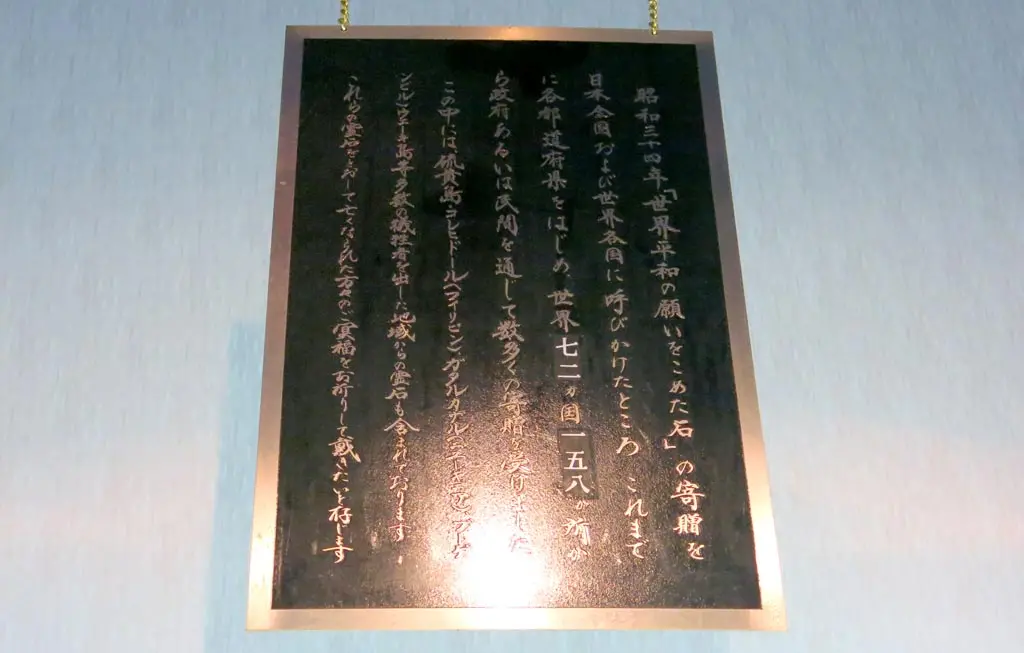 昭和三十四年「世界平和の願いをこめた石」の寄贈を
日本全国および世界各国に呼びかけたところ これまで
に各都道府県をはじめ 世界七二カ国一五八か所か
ら政府あるいは民間を通じて数多くの寄贈を受けました
この中には、硫黄島・コレヒドール(フィリピン)ガダルカナル
ンビル)ウエーキ島等多数の犠牲者を出した地域からの霊石も含まれております
これらの霊石をとおして亡くなられた方々のご冥福をお祈りして戴きたいと存じます